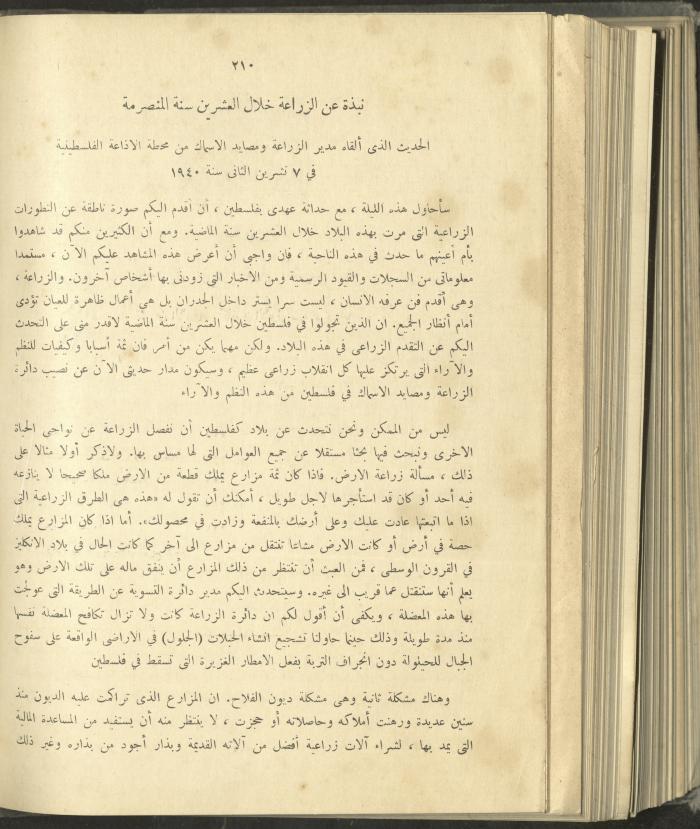 ٢١٠
نبذة عن الزراعة خلال العشرين سنة المنصرمة
الحديث الذى ألقاه مدير الزراعة ومصايد الاسماك من محطة الاذاعة الفلسطينية
فى ٧ تشرين الثانى سنة ١٩٤٠
سأحاول هذه الليلة ، مع حداثة عهدى بفلسطين ، أن أقدم اليكم صورة ناطقة عن التطورات
الزراعية التى مرت بهذه البلاد خلال العشرين سنة الماضية. ومع أن الكثيرين منكم قد شاهدوا
بأم أعينهم ما حدث فى هذه الناحية ، فان واجبى أن أعرض هذه المشاهد عليكم الآن ، مستمدا
معلوماتى من السجلات والقيود الرسمية ومن الاخبار التى زودنى بها أشخاص آخرون. والزراعة ،
وهى أقدم فن عرفه الانسان ، ليست سرا يستر داخل الجدران بل هى أعمال ظاهرة للعيان تؤدى
أمام أنظار الجميع. ان الذين تجولوا فى فلسطين خلال العشرين سنة الماضية لاقدر منى على التحدث
اليكم عن التقدم الزراعى فى هذه البلاد. ولكن مهما يكن من أمر فان ثمة أسبابا وكيفيات للنظم
والآراء التى يرتكز عليها كل انقلاب زراعى عظيم ، وسيكون مدار حديثى الآن عن نصيب دائرة
الزراعة ومصايد الاسماك فى فلسطين من هذه النظم والآراء
ليس من الممكن ونحن نتحدث عن بلاد كفلسطين أن نفصل الزراعة عن نواحى الحياة
الاخرى ونبحث فيها بحثا مستقلا عن جميع العوامل التى لها مساس بها. ولاذكر أولا مثالا على
ذلك ، مسألة زراعة الارض. فاذا كان ثمة مزارع يملك قطعة من الارض ملكا صحيحا لا ينازعه
فيه أحد أو كان قد استأجرها لاجل طويل ، أمكنك أن تقول له «هذه هى الطرق الزراعية التى
اذا ما اتبعتها عادت عليك وعلى أرضك بالمنفعة وزادت فى محصولك». أما اذا كان المزارع يملك
حصة فى أرض أو كانت الارض مشاعا تنتقل من مزارع الى آخر كما كانت الحال فى بلاد الانكليز
فى القرون الوسطى ، فمن العبث أن تنتظر من ذلك المزارع أن ينفق ماله على تلك الارض وهو
يعلم أنها ستنتقل عما قريب الى غيره. وسيتحدث اليكم مدير دائرة التسوية عن الطريقة التى عولجت
بها هذه المعضلة ، ويكفى أن أقول لكم ان دائرة الزراعة كانت ولا تزال تكافح المعضلة نفسها
منذ مدة طويلة وذلك حينما حاولنا تشجيع انشاء الحبلات (الجلول) فى الاراضى الواقعة على سفوح
الجبال للحيلولة دون انجراف التربة بفعل الامطار الغزيرة التى تسقط فى فلسطين
وهناك مشكلة ثانية وهى مشكلة ديون الفلاح. ان المزارع الذى تراكمت عليه الديون منذ
سنين عديدة ورهنت أملاكه وحاصلاته أو حجزت ، لا ينتظر منه أن يستفيد من المساعدة المالية
التى يمد بها ، لشراء آلات زراعية أفضل من آلاته القديمة وبذار أجود من بذاره وغير ذلك